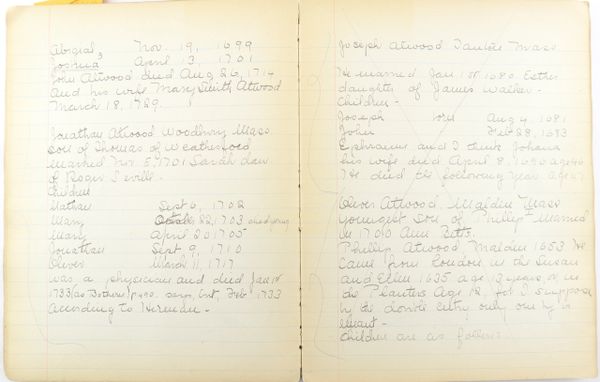 Abigail Nov. 19, 1699
3
Joshua April 13, 1701
John Attwood died Aug 26, 1714
And his wife Mary Smith Attwood
March 18, 1729.
Jonathan Atwood Woodbury Mass
son of Thomas of Weathersford
married Nov. 5, 1701 Sarah dau
of Roger
Children
Nathan Sept 6, 1702
Mary 22, 1703 died young
Mary April 20 1705
Jonathan Sept. 9, 1710
Oliver March 11, 1717
was a physician and died Jan 1st
1733 (as Bothere) p 490. says, Feb 1733
According to Herman.
Joseph Atwood Taunton Mass
He married Jan. 1st 1680. Esther
daughter of James Walker.
Children -
Joseph born Aug 4, 1681
John Feb 28, 1683
Ephraim and I think Johana
his wife died April 8, 1696 age 46
He died the following year age 47
Oliver Atwood, Malden Mass
youngest son of Phillip I Married
in 1700 Ann Betts.
Phillip Atwood Malden 1653 He
Came from London in the Susan
and Ellen 1635 age 13 years or in
the Planters Age 12, for I suppose
by the double entry only one by is
meant -
Children are as follows